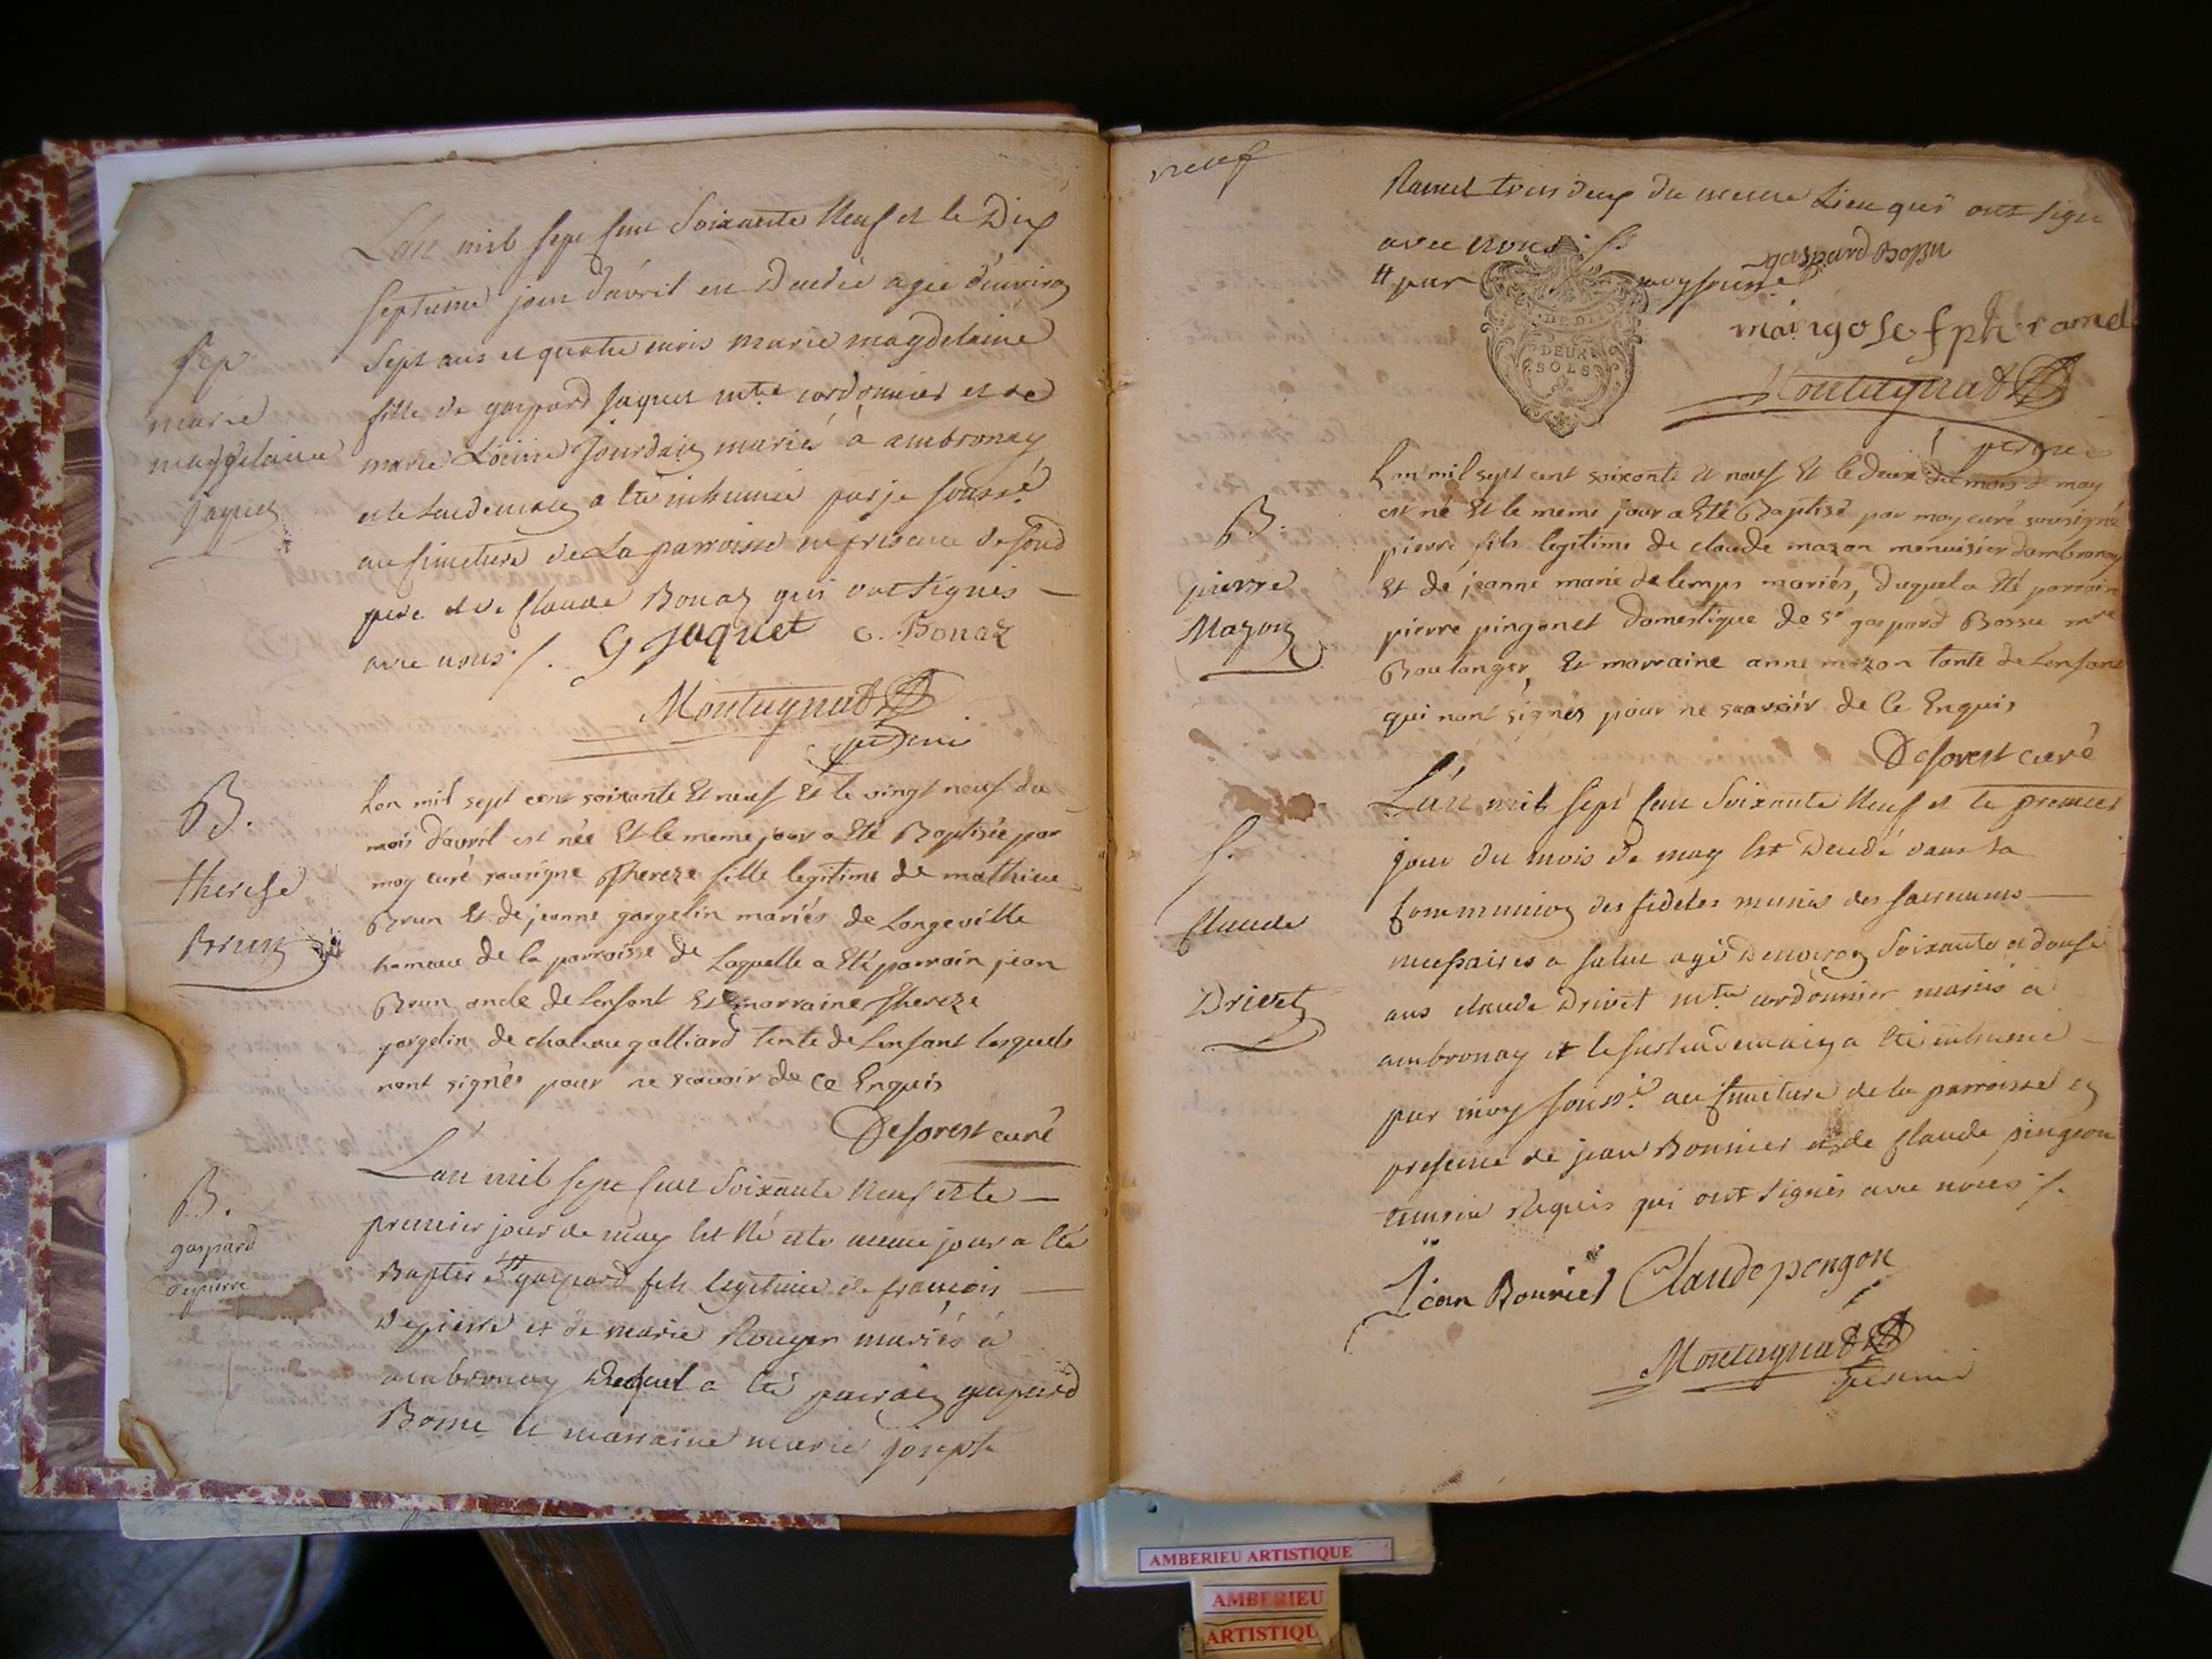 L'an mil sept cent Soixante Neuf et le Dix
septieme jour d'avril est Decedée agée d'environ
Sept ans et quatre mois marie magdelaine
fille de gaspard jaquet mtre cordonnier et de
marie Loüise Jourdain mariés à ambronay
et le Lendemain a été inhumée par je sousse
au simetiere de La parroisse en presence de sond
pere et de Claude Bonaz qui ont signés
avec nous /. G Jaquet c. Bonaz
Montagnat
Sep
marie
magdelaine
jaquet
B.
therese
Brun
Lan mil sept cent soixante Et neuf Et le vingt neuf du
mois davril est née Et le meme jour a Eté Baptisée par
moy curé sousigne Thereze fille legitime de mathieu
Brun Et de jeanne gorgelin mariés de Longeville
hameau de la parroisse de Laquelle a Eté parrain jean
Brun oncle de Lenfant Et marraine Thereze
gorgelin de chateau galliard tente de Lenfant lesquels
nont signés pour ne scavoir de ce Enquis
Deforest curé
B.
gaspard
depierre
L'an mil sept cent Soixante Neuf et le
premier jour de may est Né et le meme jour a été
Baptisé # gaspard fils legitime de françois
Depierre et de marie Rouyer mariés à
ambronay Duquel a été parrain gaspard
Bossu et marraine marie joseph
neuf
Ramel tous deux du meme Lieu qui ont signé
avec nous /.
# par moy sousse
gaspard Bossu
DEUX
SOLS
marigosefph ramel
Montagnat
B.
pierre
Mazon
Lan mil sept cent soixante Et neuf Et le deux du mois de may
est né Et le meme jour a Eté Baptisé par moy curé sousigné
pierre fils legitime de claude mazon menuisier dambronay
Et de jeanne marie delemps mariés, duquel a Eté parrain
pierre pingonet domestique de sr gaspard Bossu mre
Boulanger, Et marraine anne mazon tante de Lenfant
qui nont signés pour ne scavoir de ce Enquis
Deforest curé
S.
Claude
Drivet
L'an mil sept cent Soixante Neuf et le premier
jour du mois de may Est Decedé dans la
Communion des fideles munis des sacremens
necessaires a salut agé Denviron Soixante et douse
ans claude Drivet mtre cordonnier mariés à
ambronay et le surlendemain a été inhumé
par moy soussé au simetiere de la parroisse en
presence de jean Bonnier et de Claude pingeon
temoins Requis qui ont signés avec nous /.
Jean Bounier Claude pengon
Montagnat
AMBERIEU ARTISTIQUE
AMBERIEU
ARTISTIQU